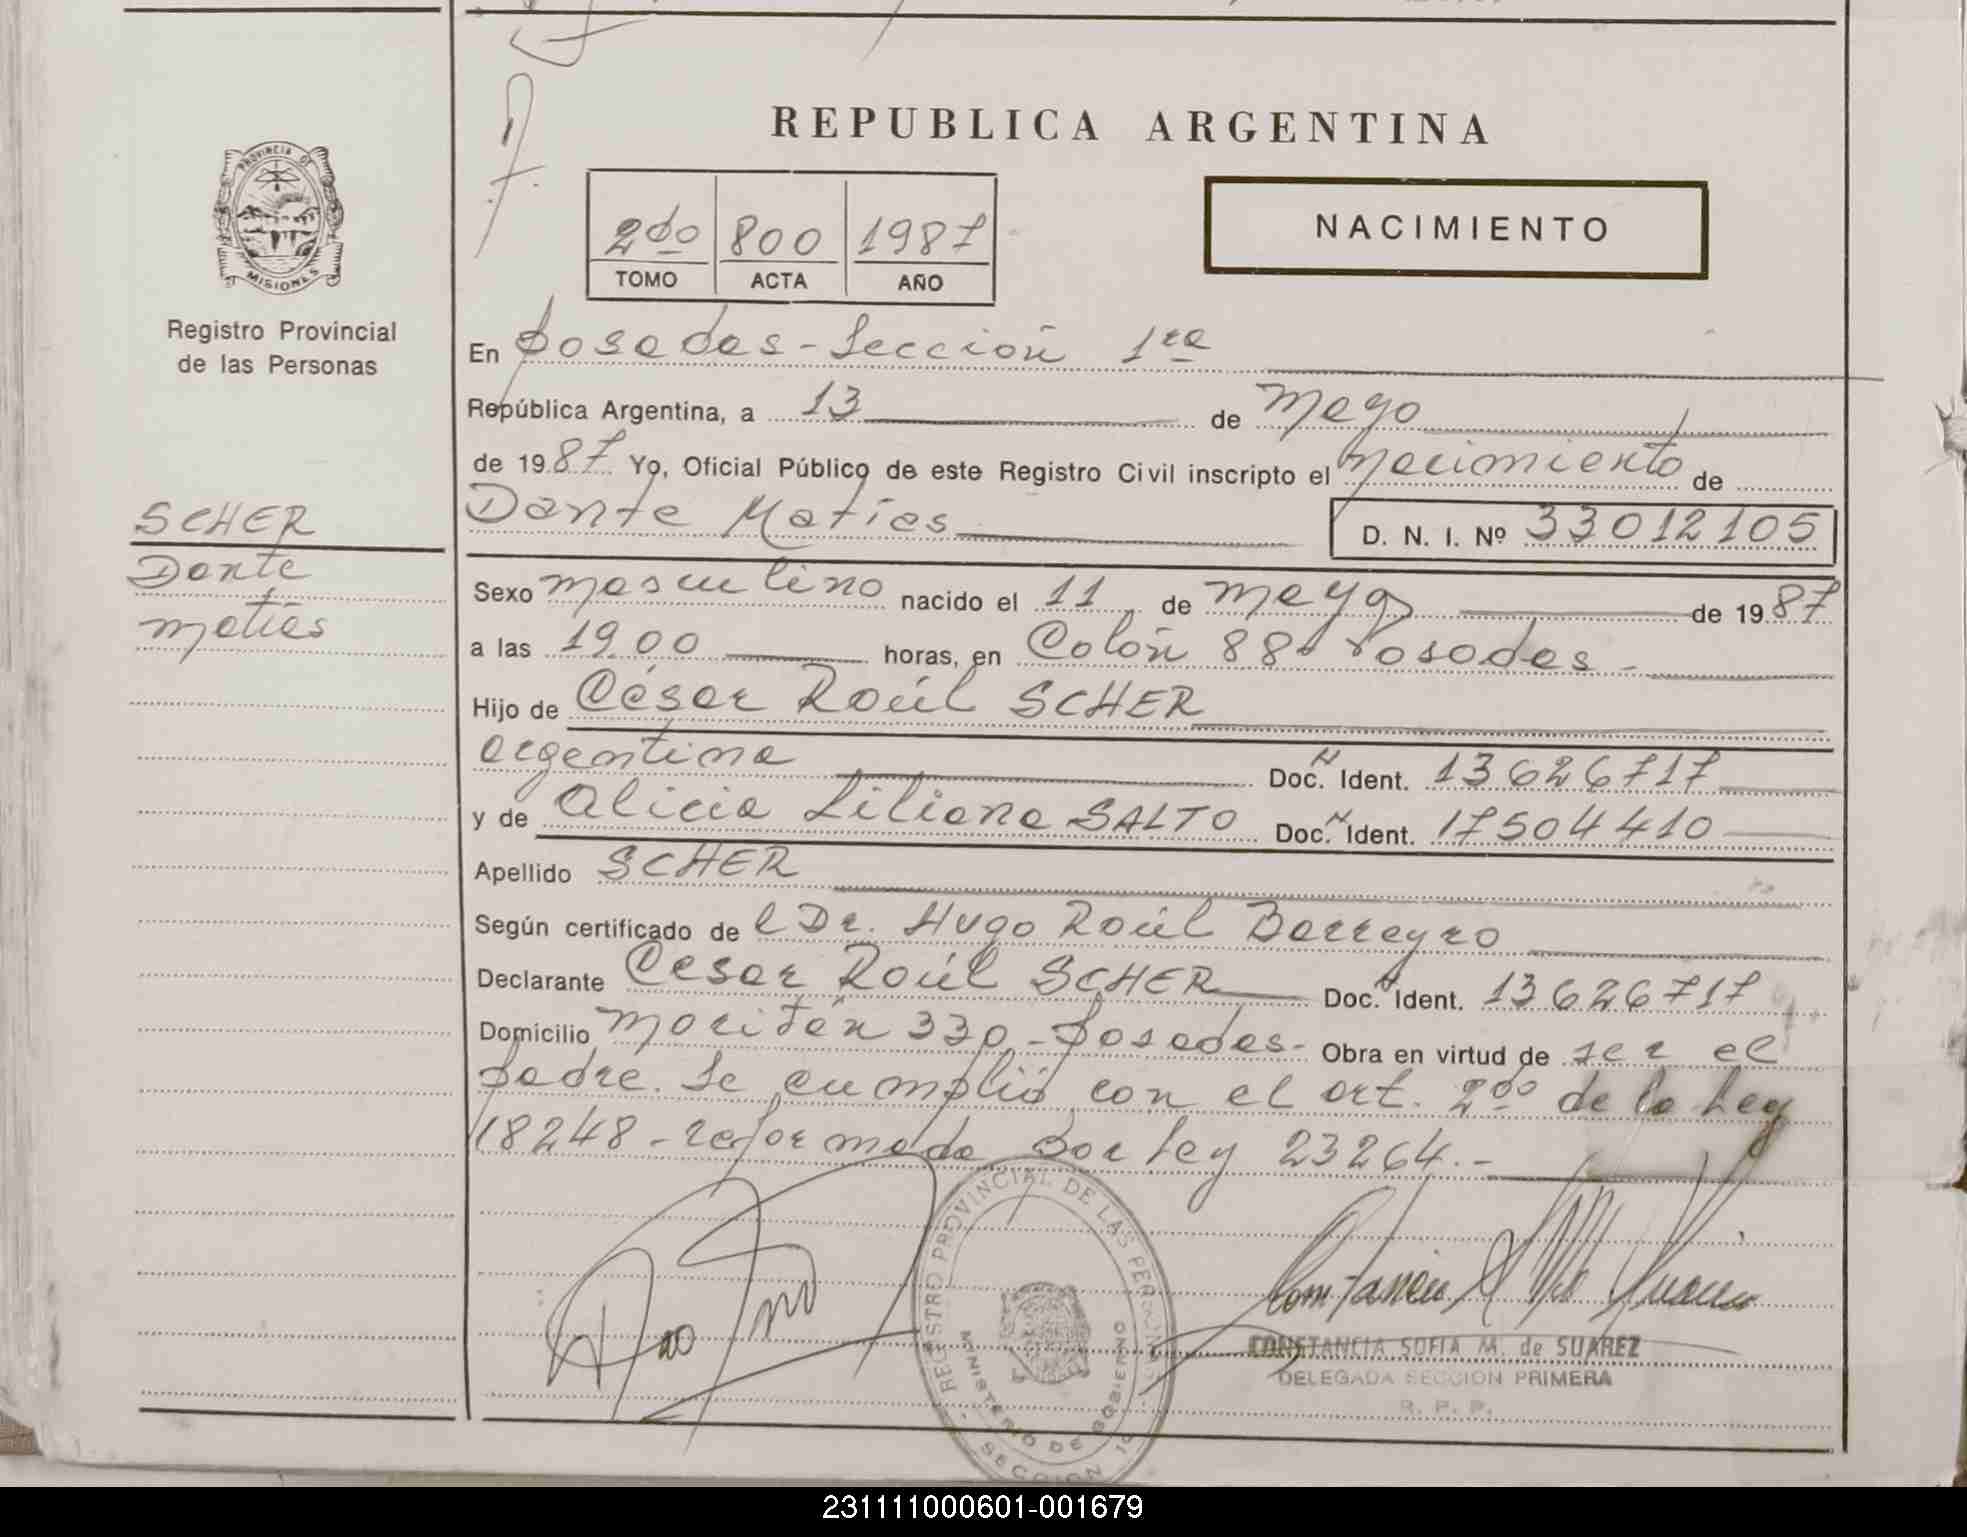 REPUBLICA ARGENTINA
PROVINCIA DE MISIONES
Registro Provincial
de las Personas
2do 800 1987
TOMO ACTA AÑO
NACIMIENTO
En Posadas - Sección 1ra
República Argentina, a 13 de Mayo
de 1987 Yo, Oficial Público de este Registro Civil inscripto el nacimiento de
Dante Matías D. N. I. Nº 33012105
SCHER
Dante
Matías
Sexo masculino nacido el 11 de Mayo de 1987
a las 19.00 horas, en Colón 880 Posadas
Hijo de César Raúl SCHER
argentina Doc. N Ident. 13626717
y de Alicia Liliana SALTO Doc. N Ident. 17504410
Apellido SCHER
Según certificado de l Dr. Hugo Raúl Barreyro
Declarante César Raúl SCHER Doc. N Ident. 13626717
Domicilio 330 - Posadas - Obra en virtud de ser el
padre. Se cumplió con el art. 2do de la Ley
18248 - reformada por Ley 23264.-
REGISTRO PROVINCIAL DE LAS PERSONAS
MINISTERIO DE GOBIERNO
SECCION 1
CONSTANCIA SOFIA M. de SUAREZ
DELEGADA SECCION PRIMERA
R. P. P.
231111000601-001679